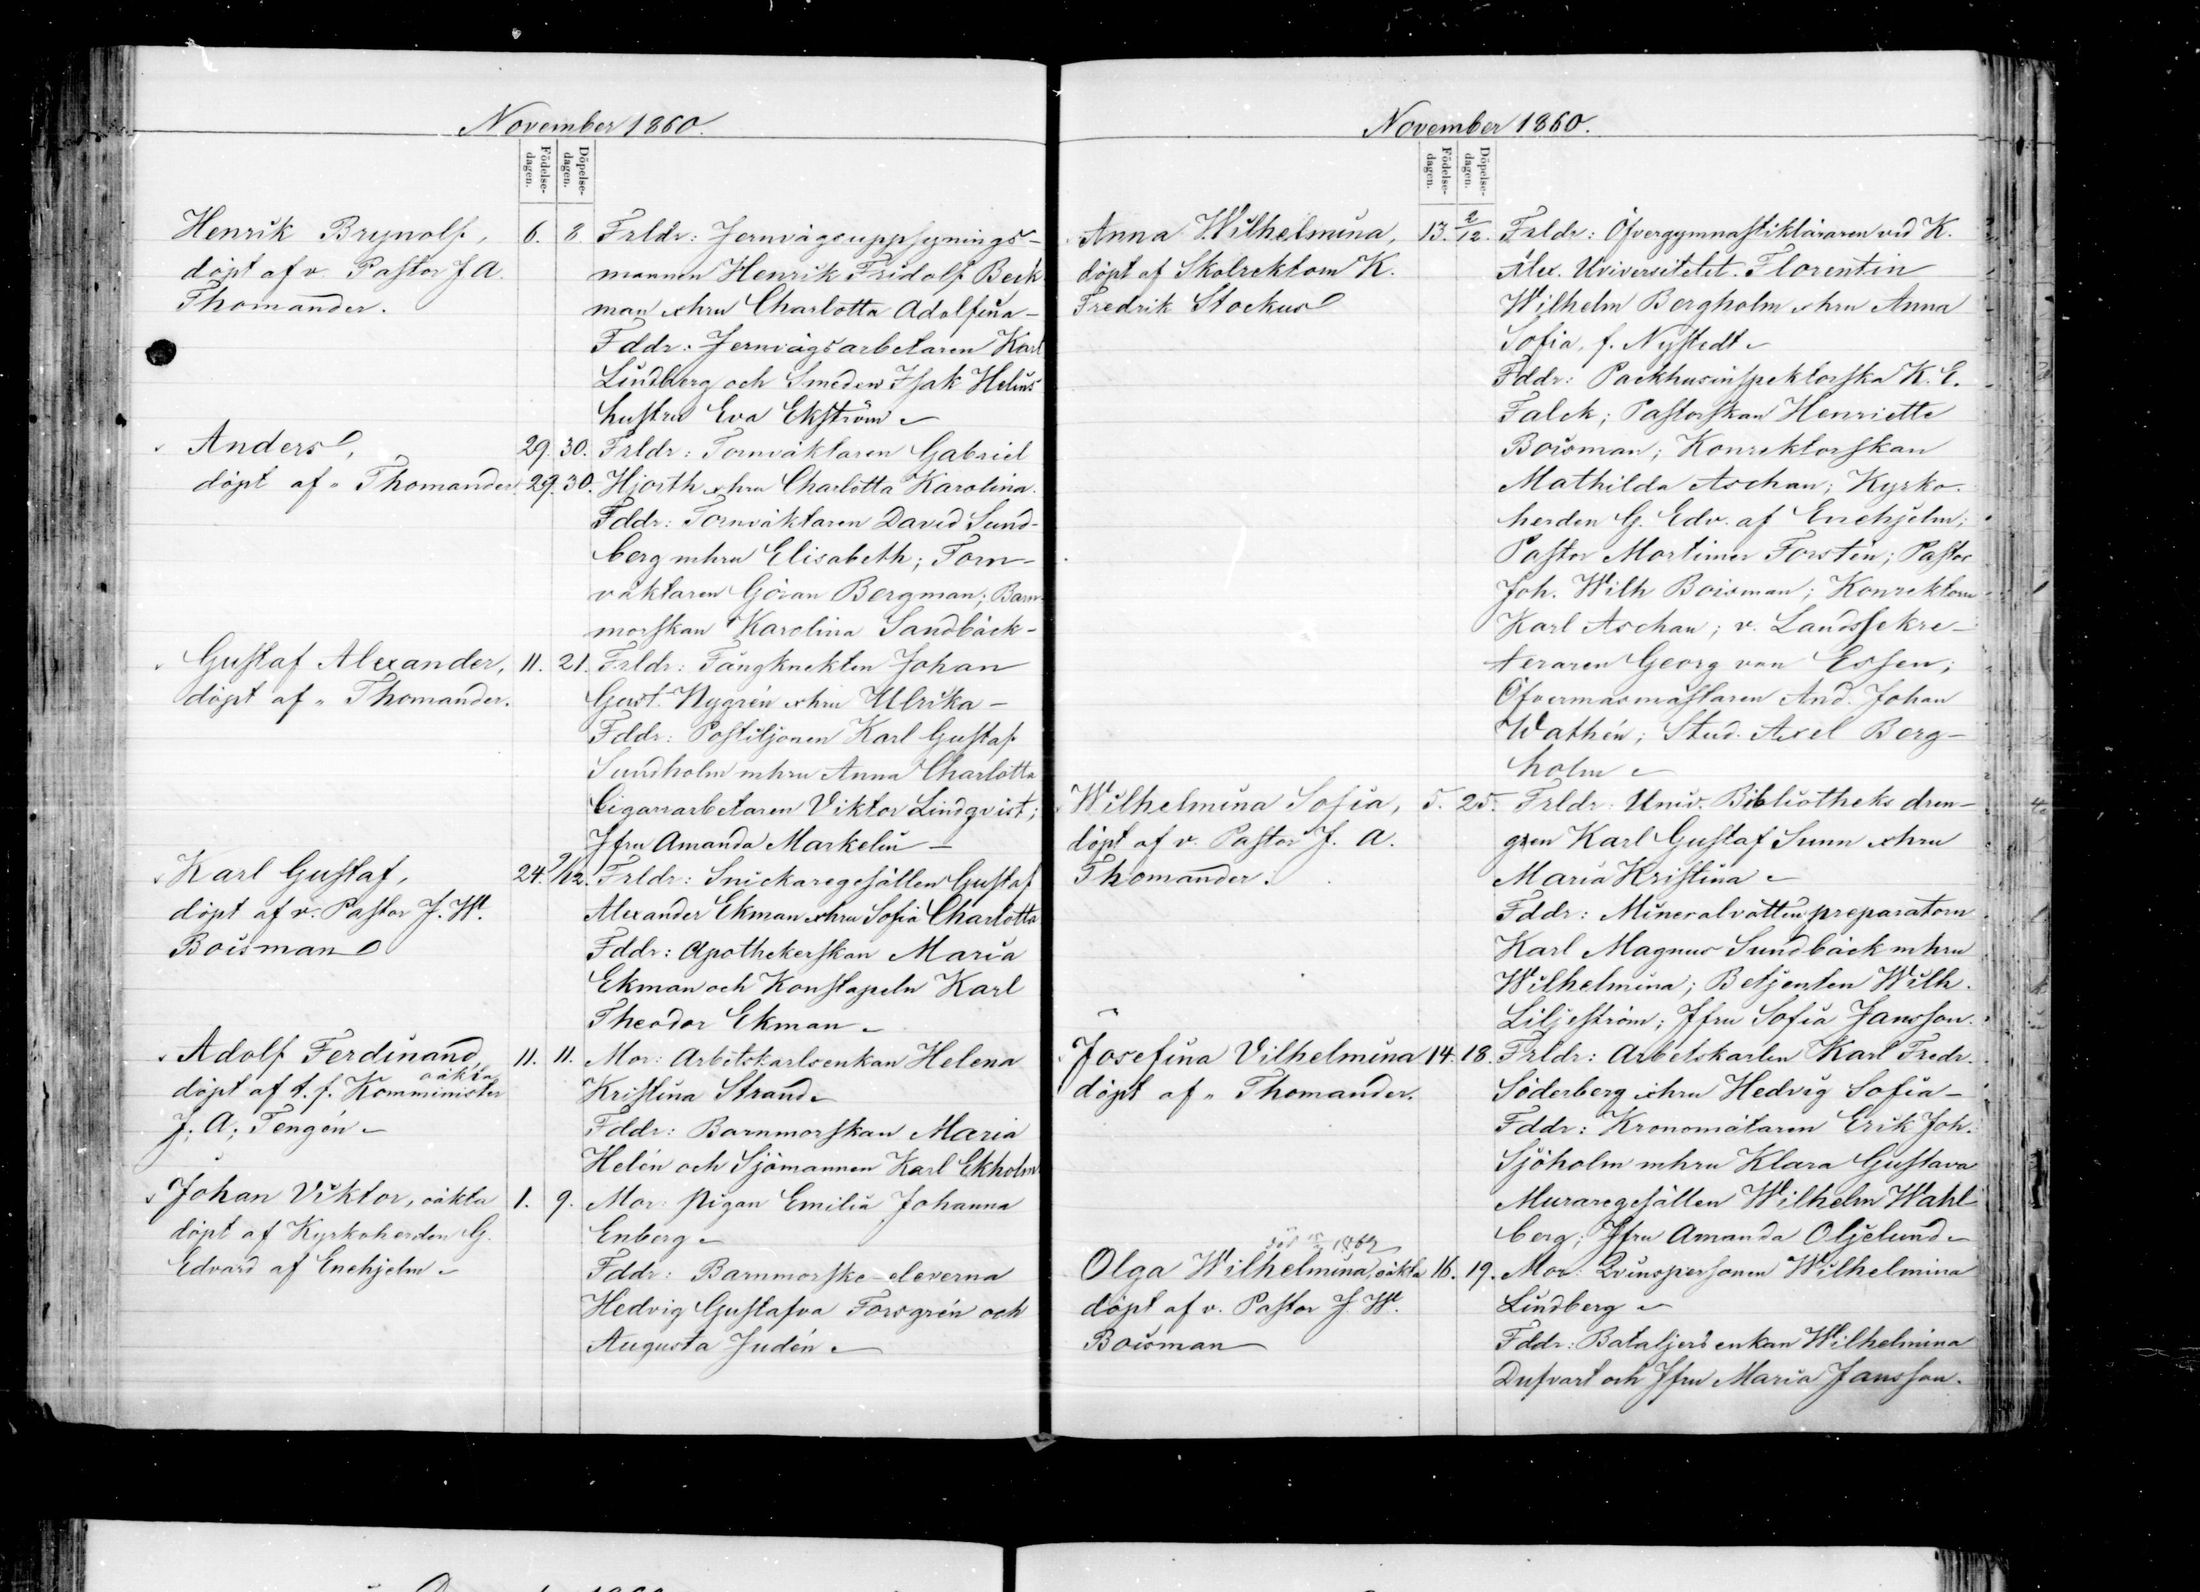 November 1860.
Födelse-dagen.
Döpelse-dagen.
Henrik Brynolf,
döpt af v. Pastor J A.
Thomander.
6. 8
Frldr: Jernvägsuppsynings-
mannen Henrik Fridolf Beck
man o hru Charlotta Adolfina -
Fddr: Jernvägsarbetaren Karl
Lindberg och Smeden Isak Helins
hustru Eva Ekström
Anders,
döpt af " Thomander.
29. 30.
29. 30.
Frldr: Tornväktaren Gabriel
Hjorth o hru Charlotta Karolina.
Fddr: Tornväktaren David Sund-
berg m hru Elisabeth; Torn-
väktaren Göran Bergman; Barn-
morskan Karolina Sandbäck -
Gustaf Alexander,
döpt af " Thomander.
11. 21.
Frldr: Fångknekten Johan
Gust. Nygrén o hru Ulrika -
Fddr: Postiljonen Karl Gustaf
Sundholm m hru Anna Charlotta
Cigarrarbetaren Viktor Lindqvist;
Jfru Amanda Markelin -
Karl Gustaf,
döpt af v. Pastor J. W.
Boisman
24. 9/12.
Frldr: Snickaregesällen Gustaf
Alexander Ekman o hru Sofia Charlotta
Fddr: Apothekerskan Maria
Ekman och Konstapeln Karl
Theodor Ekman
Adolf Ferdinand,
oäkta
döpt af t. f. Komminister
J. A. Tengén
11. 11.
Mor: Arbetskarlsenkan Helena
Kristina Strand
Fddr: Barnmorskan Maria
Helén och Sjömannen Karl Ekholm
Johan Viktor, oäkta
döpt af Kyrkoherden G.
Edvard af Enehjelm
1. 9.
Mor: Pigan Emilia Johanna
Enberg
Fddr: Barnmorske-eleverna
Hedvig Gustafva Forsgrén och
Augusta Judén
November 1860.
Födelse-dagen.
Döpelse-dagen.
Anna Wilhelmina,
döpt af Skolrektorn K.
Fredrik Stockus
13. 2/12.
Frldr: Öfvergymnastikläraren vid K.
Alex. Universitetet. Florentin
Wilhelm Bergholm o hru Anna
Sofia, f. Nystedt
Fddr: Packhusinspektorska K. E.
Falck; Pastorskan Henriette
Boisman; Konrektorskan
Mathilda Aschan; Kyrko-
herden G. Edv. af Enehjelm;
Pastor Mortimer Forstén; Pastor
Joh. Wilh Boisman; Konrektorn
Karl Aschan; v. Landssekre-
teraren Georg von Essen;
Öfvermasmästaren And. Johan
Wathén; Stud. Axel Berg-
holm
Wilhelmina Sofia,
döpt af v. Pastor J. A.
Thomander.
5. 25.
Frldr: Univ. Bibliotheks dren-
gen Karl Gustaf Sunn o hru
Maria Kristina
Fddr: Mineralvattenpreparatorn
Karl Magnus Sundbäck m hru
Wilhelmina; Betjenten Wilh.
Liljeström; Jfru Sofia Jansson.
Josefina Vilhelmina
döpt af " Thomander.
14. 18.
Frldr: Arbetskarlen Karl Fredr.
Söderberg o hru Hedvig Sofia -
Fddr: Kronomätaren Erik Joh.
Sjöholm m hru Klara Gustava
Muraregesällen Wilhelm Wahl
berg; Jfru Amanda Oljelund
död 1862
Olga Wilhelmina, oäkta
döpt af v. Pastor J. W.
Boisman
16. 19.
Mor: Qvinspersonen Wilhelmina
Lindberg
Fddr: Bataljers enkan Wilhelmina
Dufvart och Jfru Maria Jansson.